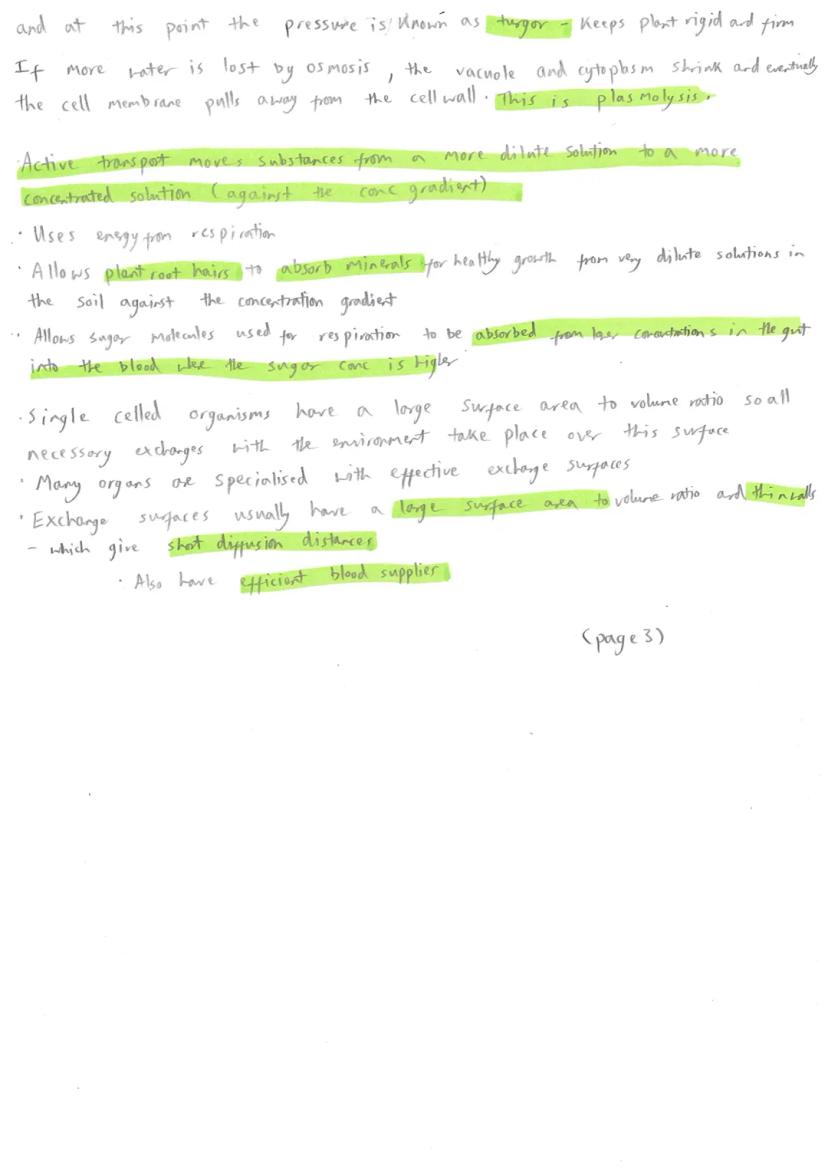 and at this point the pressure is known as turgor - Keeps plant rigid and firm
If more water is lost by osmosis, the vacuole and cytoplasm shrink and eventually
the cell membrane pulls away from the cell wall. This is plasmolysis.
Active transport moves substances from a more dilute solution to a more
concentrated solution (against the conc gradient)
· Uses energy from respiration
· Allows plant root hairs to absorb minerals for healthy growth from very dilute solutions in
the soil against the concentration gradient
· Allows sugar molecules used for respiration to be absorbed from lower concentrations in the gut
into the blood where the sugar conc is higher
· Single celled organisms have a large surface area to volume ratio so all
necessary exchanges with the environment take place over this surface
· Many organs are specialised with effective exchange surfaces
· Exchange surfaces usually have a large surface area to volume ratio and thin walls
- which give short diffusion distances
· Also have efficient blood supplies
(page 3)